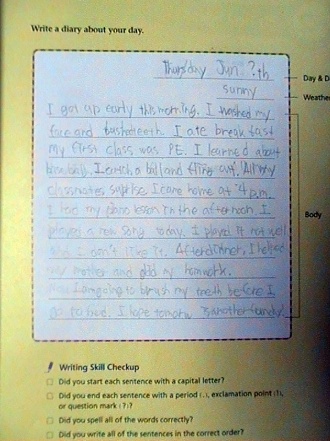 Write a diary about your day.
Thursday Jun ?th
Day & D
sunny
Weathe
I got up early this morning. I washed my
face and teeth. I ate breakfast
my first class was P.E. I learned about
I catch a ball and All my
classmates I came home at 4 p.m.
I had my piano lesson in the afternoon. I
Body
played a new song today. I played it not well
and I don't like it. After dinner, I helped
my mother and did my homework.
I am going to brush my teeth before I
go to bed. I hope tomorrow is another
Writing Skill Checkup
Did you start each sentence with a capital letter?
Did you end each sentence with a period (.), exclamation point (!),
or question mark (?)?
Did you spell all of the words correctly?
Did you write all of the sentences in the correct order?